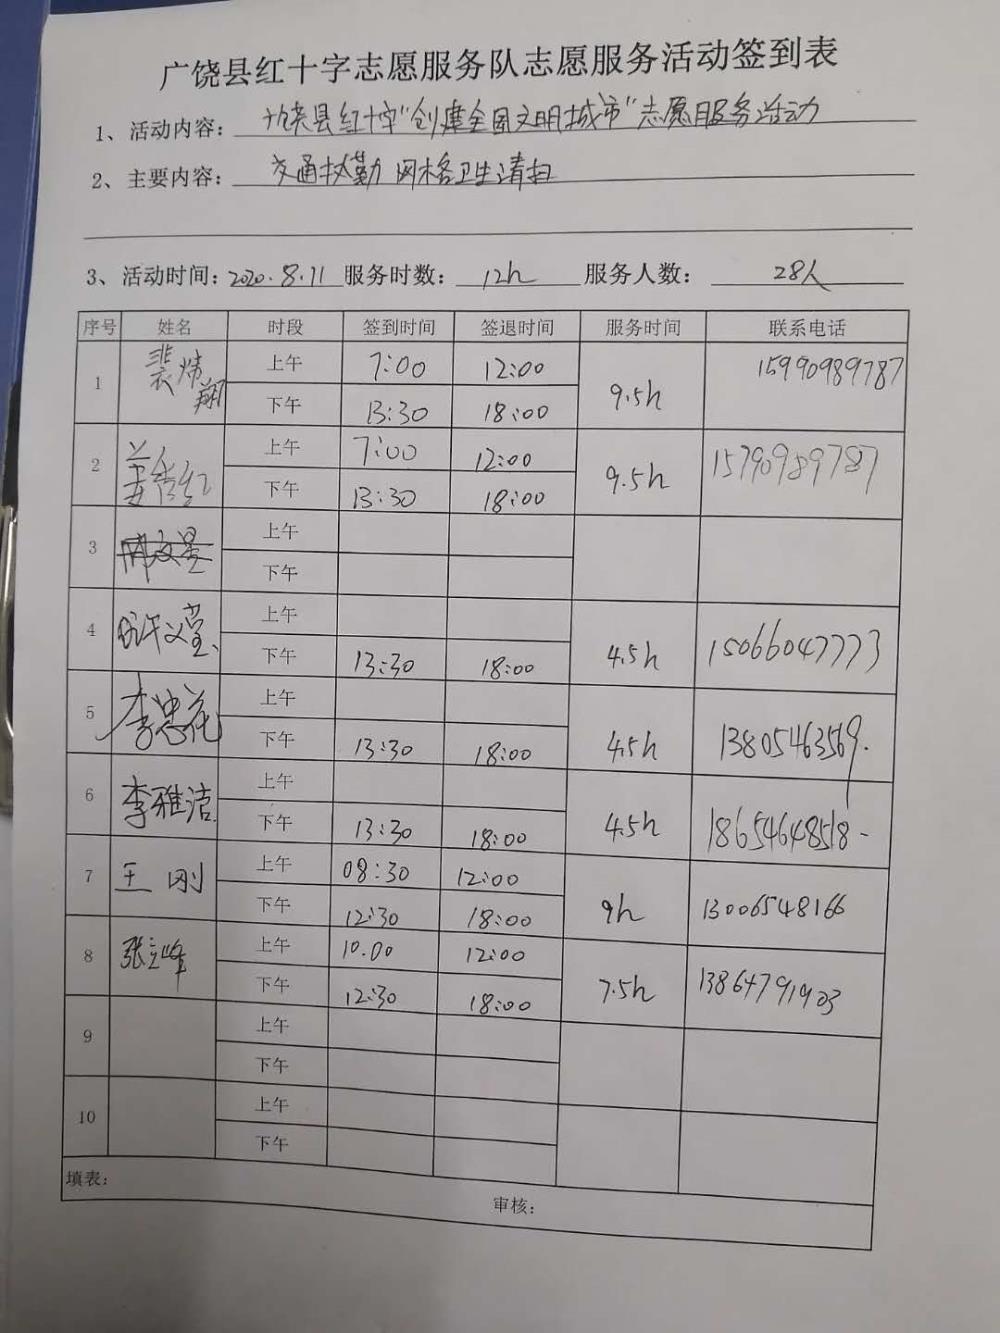 广饶县红十字志愿服务队志愿服务活动签到表
1、活动内容：广饶县红十字"创建全国文明城市"志愿服务活动
2、主要内容：交通执勤 网格卫生清扫
3、活动时间：2020.8.11 服务时数：12h 服务人数：28人
序号 姓名 时段 签到时间 签退时间 服务时间 联系电话
1 裴炜翔 上午 7:00 12:00 9.5h 15990989787
下午 13:30 18:00
2 姜秀红 上午 7:00 12:00 9.5h 15790989787
下午 13:30 18:00
3 上午
下午
4 上午 4.5h 15066047773
下午 13:30 18:00
5 李忠花 上午 4.5h 13805463569.
下午 13:30 18:00
6 李雅洁 上午 4.5h 18654648518
下午 13:30 18:00
7 王刚 上午 08:30 12:00 9h 13006548166
下午 12:30 18:00
8 张立峰 上午 10.00 12:00 7.5h 13864791903
下午 12:30 18:00
9 上午
下午
10 上午
下午
填表：
审核：